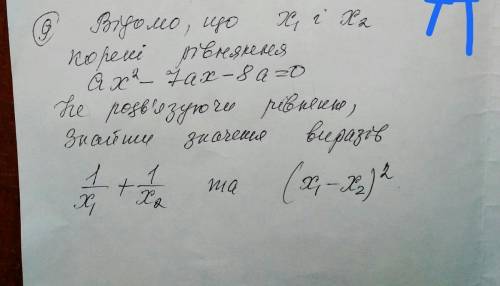 9 Відомо, що x₁ і x₂
корені рівняння
ax² - 7ax - 8a = 0
Не розв'язуючи рівнення,
Знайти значення виразів
1/x₁ + 1/x₂ та (x₁ - x₂)²